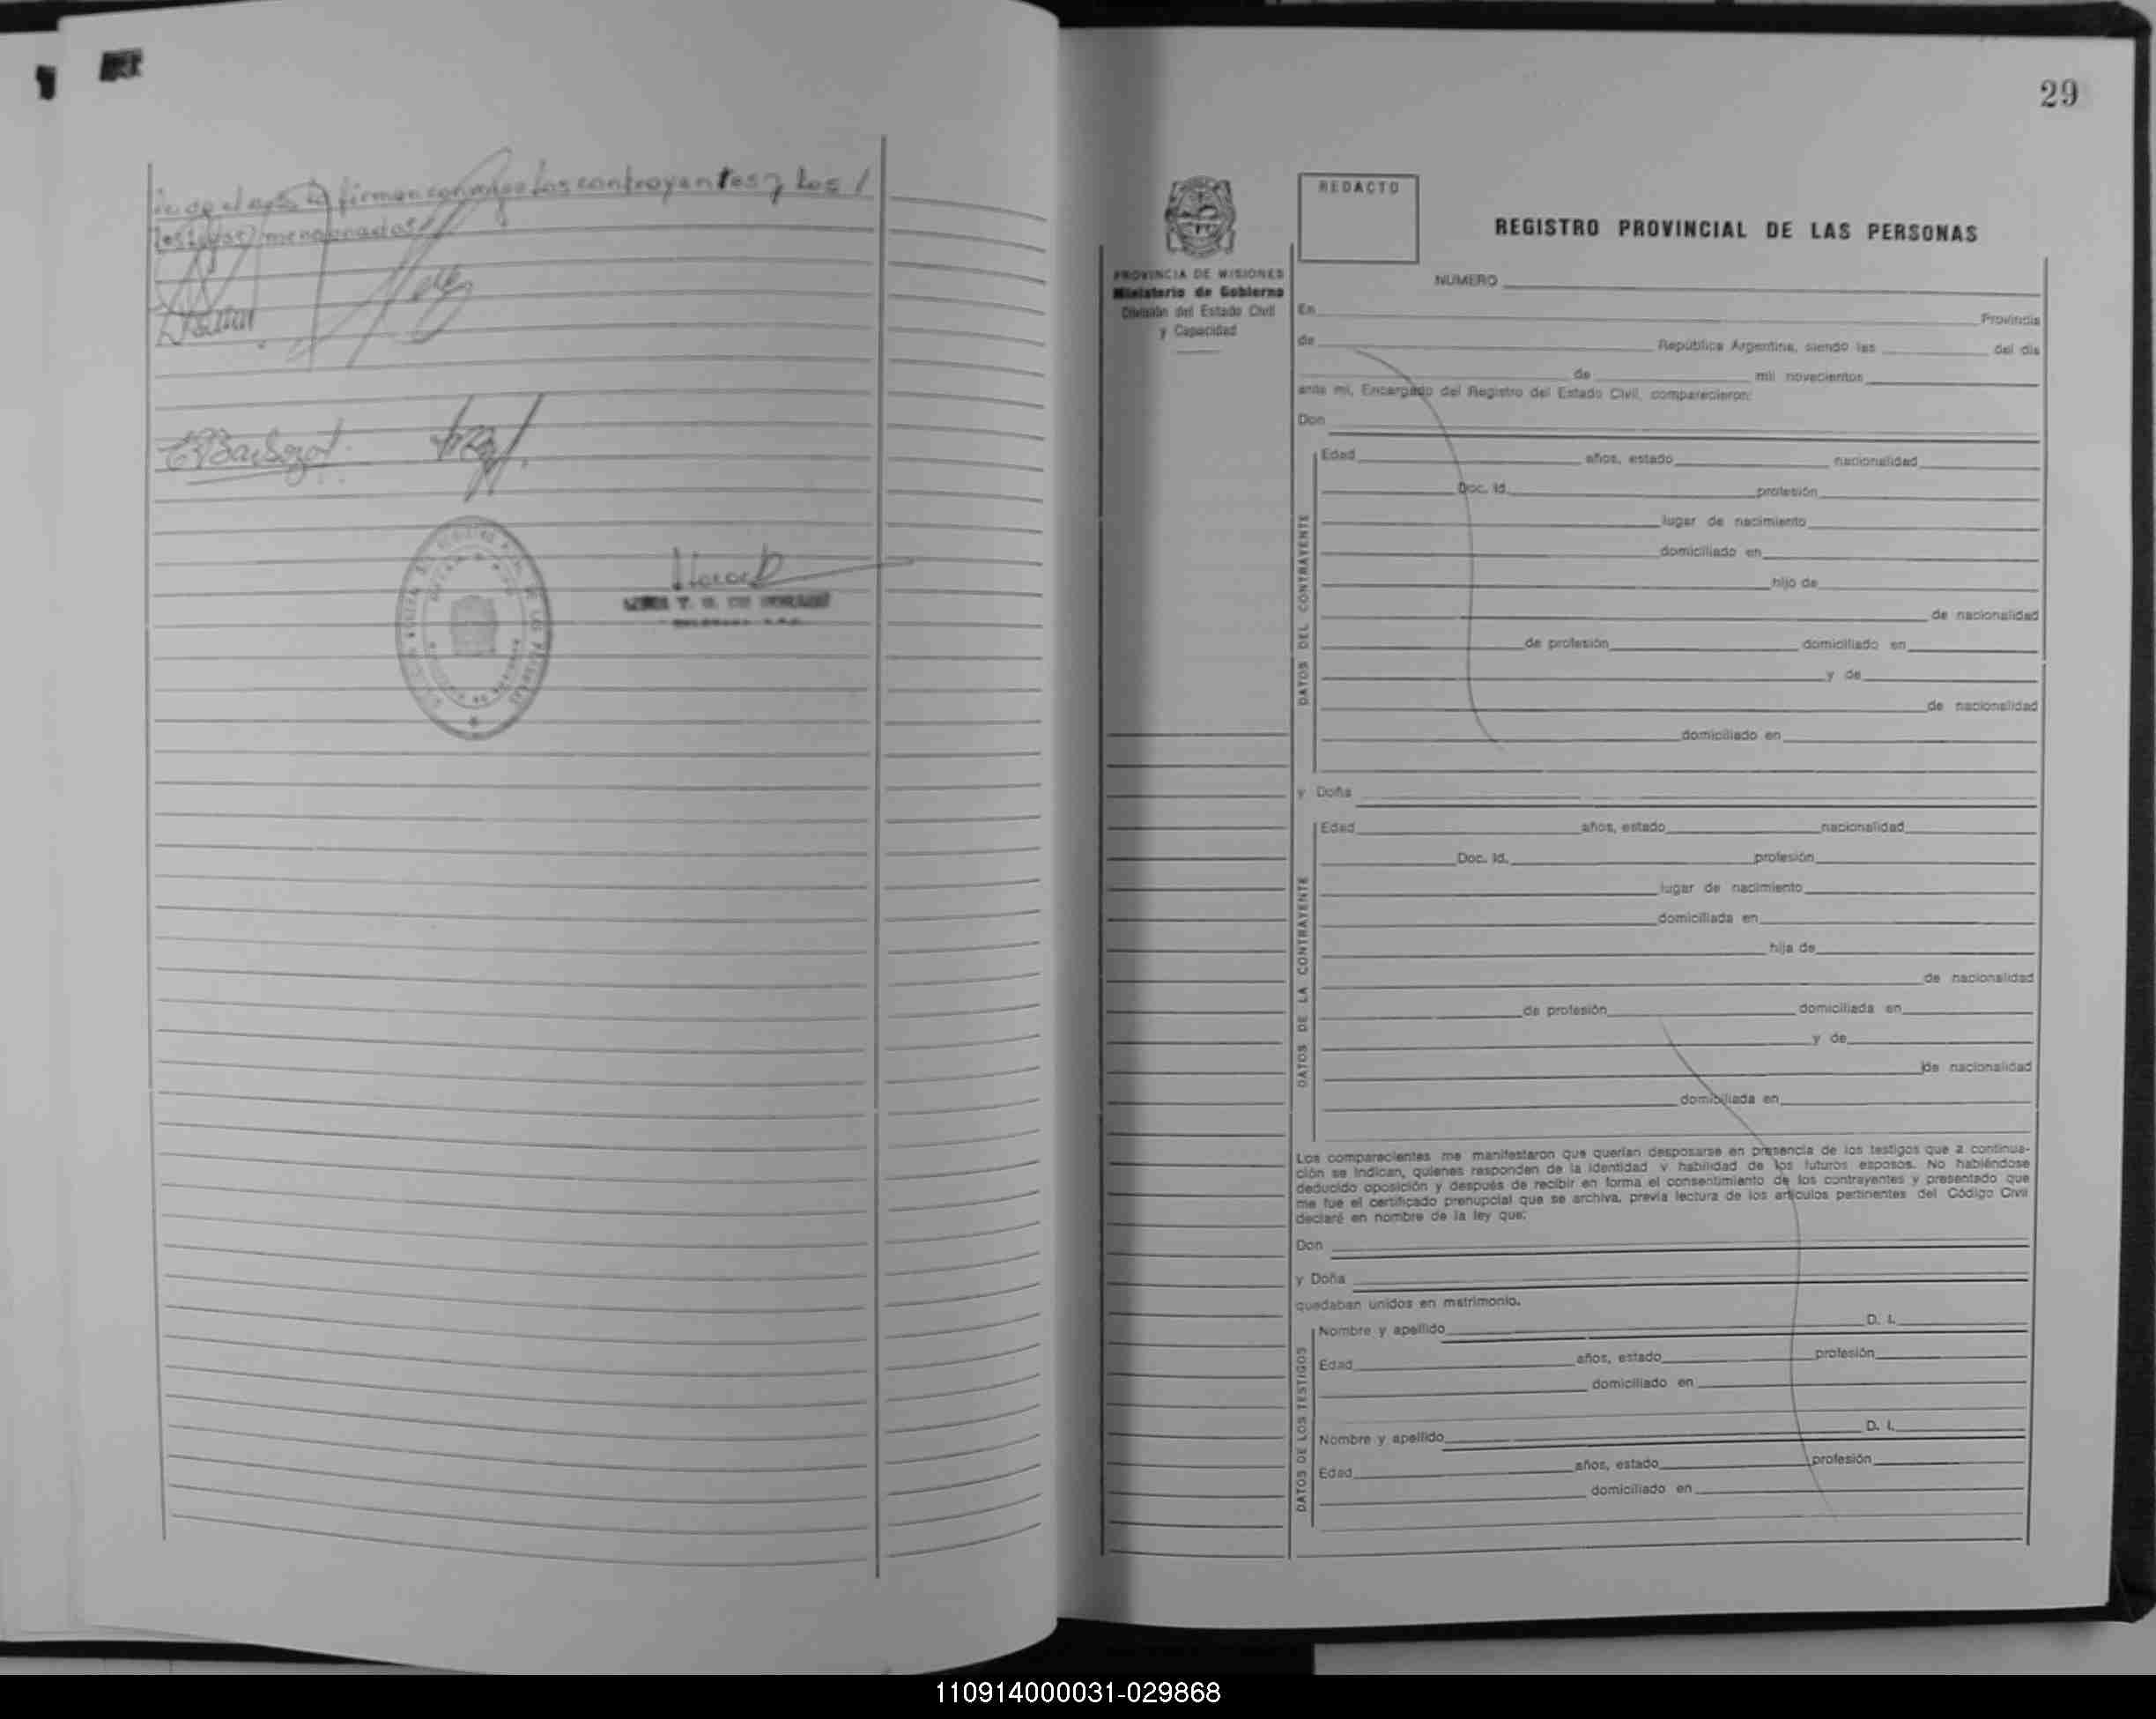 firman conmigo los contrayentes y los /
testigos mencionados
29
REDACTO
REGISTRO PROVINCIAL DE LAS PERSONAS
PROVINCIA DE MISIONES
Ministerio de Gobierno
División del Estado Civil
y Capacidad
NUMERO
En Provincia
de República Argentina, siendo las del día
de mil novecientos
ante mí, Encargado del Registro del Estado Civil, comparecieron:
Don
DATOS DEL CONTRAYENTE
Edad años, estado nacionalidad
Doc. Id. profesión
lugar de nacimiento
domiciliado en
hijo de
de nacionalidad
de profesión domiciliado en
y de
de nacionalidad
domiciliado en
y Doña
DATOS DE LA CONTRAYENTE
Edad años, estado nacionalidad
Doc. Id. profesión
lugar de nacimiento
domiciliada en
hija de
de nacionalidad
de profesión domiciliada en
y de
de nacionalidad
domiciliada en
Los comparecientes me manifestaron que querían desposarse en presencia de los testigos que a continua-
ción se indican, quienes responden de la identidad y habilidad de los futuros esposos. No habiéndose
deducido oposición y después de recibir en forma el consentimiento de los contrayentes y presentado que
me fue el certificado prenupcial que se archiva, previa lectura de los artículos pertinentes del Código Civil
declaré en nombre de la ley que:
Don
y Doña
quedaban unidos en matrimonio.
DATOS DE LOS TESTIGOS
Nombre y apellido D. I.
Edad años, estado profesión
domiciliado en
Nombre y apellido D. I.
Edad años, estado profesión
domiciliado en
110914000031-029868